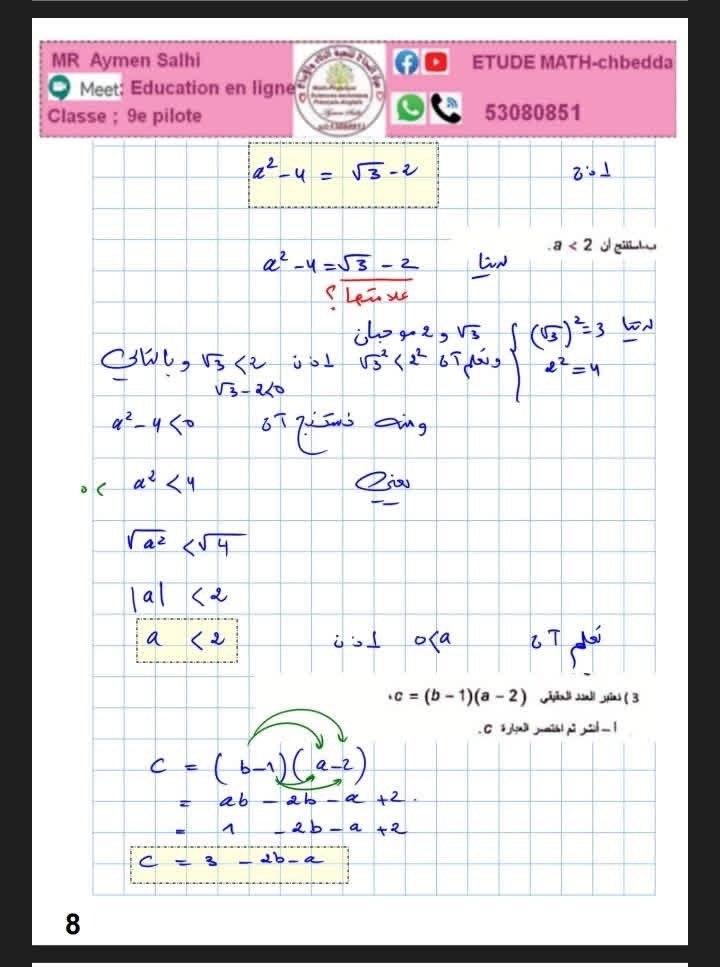 MR Aymen Salhi
Meet: Education en ligne
Classe ; 9e pilote
ETUDE MATH-chbedda
53080851
اذن a² - 4 = √3 - 2
ب-استنتج أن a < 2.
لدينا a² - 4 = √3 - 2
علامتها؟
لدينا (√3)² = 3
2² = 4
√3 و 2 موجبان
ونعلم أن √3² < 2² اذن √3 < 2 وبالتالي
√3 - 2 < 0
ومنه نستنتج أن a² - 4 < 0
يعني a² < 4
0 <
√a² < √4
|a| < 2
نعلم أن 0 < a اذن a < 2
3 ) نعتبر العدد الحقيقي c = (b − 1)(a − 2)،
أ – أنشر ثم اختصر العبارة c.
C = (b-1)(a-2)
= ab - 2b - a + 2.
= 1 - 2b - a + 2
C = 3 - 2b - a
8